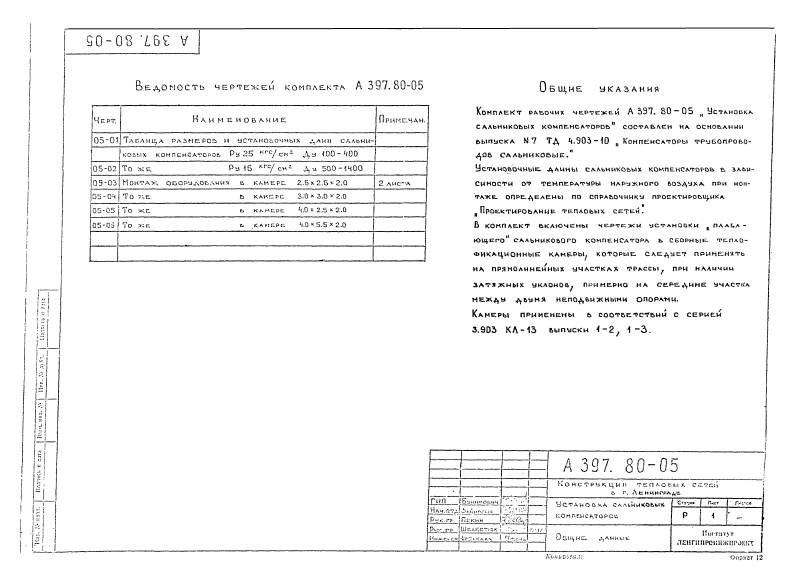 А 397. 80-05
Ведомость чертежей комплекта А 397.80-05
Черт. Наименование Примечан.
05-01 Таблица размеров и установочных длин сальни-
ковых компенсаторов Ру 25 кгс/см² Ду 100-400
05-02 То же Ру 16 кгс/см² Ду 500-1400
05-03 Монтаж оборудования в камере 2.6×2.6×2.0 2 листа
05-04 То же в камере 3.0×3.0×2.0
05-05 То же в камере 4.0×2.5×2.0
05-06 То же в камере 4.0×5.5×2.0
Общие указания
Комплект рабочих чертежей А 397.80-05 „Установка
сальниковых компенсаторов" составлен на основании
выпуска N7 ТД 4.903-10 „Компенсаторы трубопрово-
дов сальниковые."
Установочные длины сальниковых компенсаторов в зави-
симости от температуры наружного воздуха при мон-
таже определены по справочнику проектировщика
„Проектирование тепловых сетей".
В комплект включены чертежи установки „плава-
ющего" сальникового компенсатора в сборные тепло-
фикационные камеры, которые следует применять
на прямолинейных участках трассы, при наличии
затяжных уклонов, примерно на середине участка
между двумя неподвижными опорами.
Камеры применены в соответствий с серией
3.903 КЛ-13 выпуски 1-2, 1-3.
А 397. 80-05
Конструкции тепловых сетей
в г. Ленинграде
Установка сальниковых
компенсаторов
Стадия Лист Листов
Р 1 –
Общие данные
Институт
ЛЕНГИПРОИНЖПРОЕКТ
ГИП
Нач. отд.
Рук. гр. Пекин
Рук. гр.
Инженер
Подпись и дата
Инв. № дубл.
Взам. инв. №
Подпись и дата
Инв. № подл.
Копировал:
Формат 12